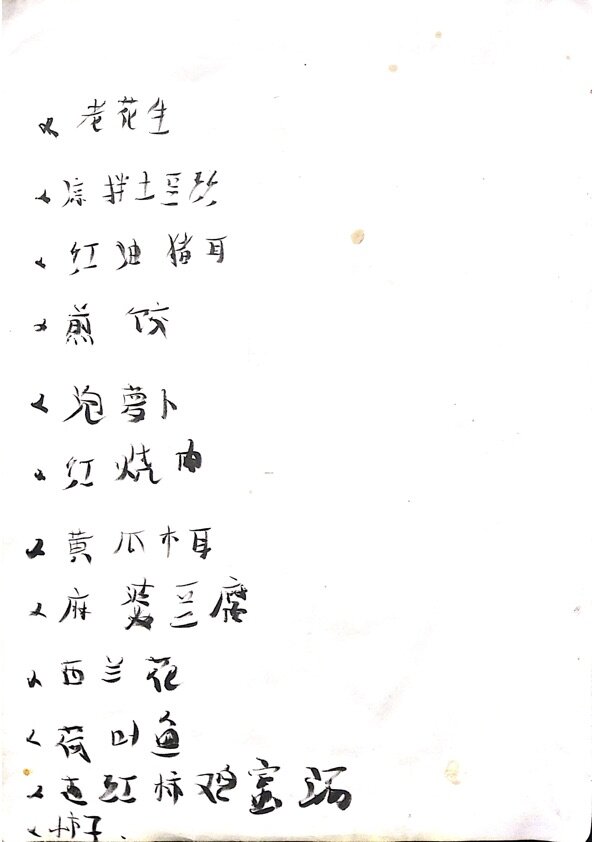 老花生
凉拌土豆丝
红油猪耳
煎饺
泡萝卜
红烧肉
黄瓜木耳
麻婆豆腐
西兰花
荷叶鱼
西红柿鸡蛋汤
柿子.